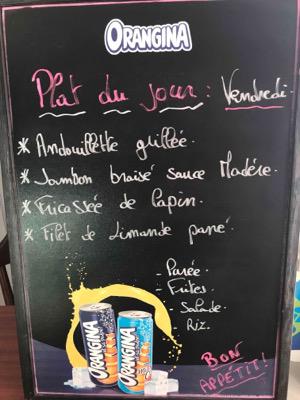 ORANGINA
Plat du jour : Vendredi.
* Andouillette grillée.
* Jambon braisé sauce Madère.
* Fricassée de lapin.
* Filet de Limande pané.
- Purée
- Frites.
- Salade
- Riz.
BON
APPÉTIT!
ORANGINA
ORANGINA